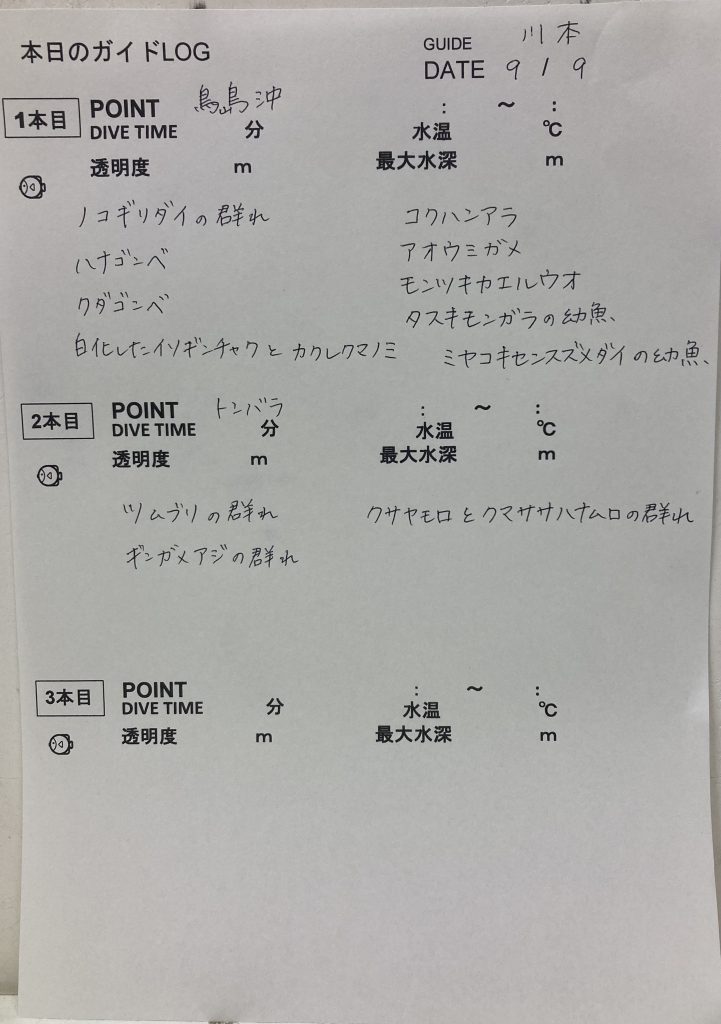 本日のガイドLOG
GUIDE 川本
DATE 9 / 9
1本目 POINT 鳥島沖 : ～ :
DIVE TIME 分 水温 ℃
透明度 m 最大水深 m
ノコギリダイの群れ コクハンアラ
ハナゴンベ アオウミガメ
クダゴンベ モンツキカエルウオ
タスキモンガラの幼魚、
白化したイソギンチャクと カクレクマノミ ミヤコキセンスズメダイの幼魚、
2本目 POINT トンバラ : ～ :
DIVE TIME 分 水温 ℃
透明度 m 最大水深 m
ツムブリの群れ クサヤモロとクマササハナムロの群れ
ギンガメアジの群れ
3本目 POINT : ～ :
DIVE TIME 分 水温 ℃
透明度 m 最大水深 m